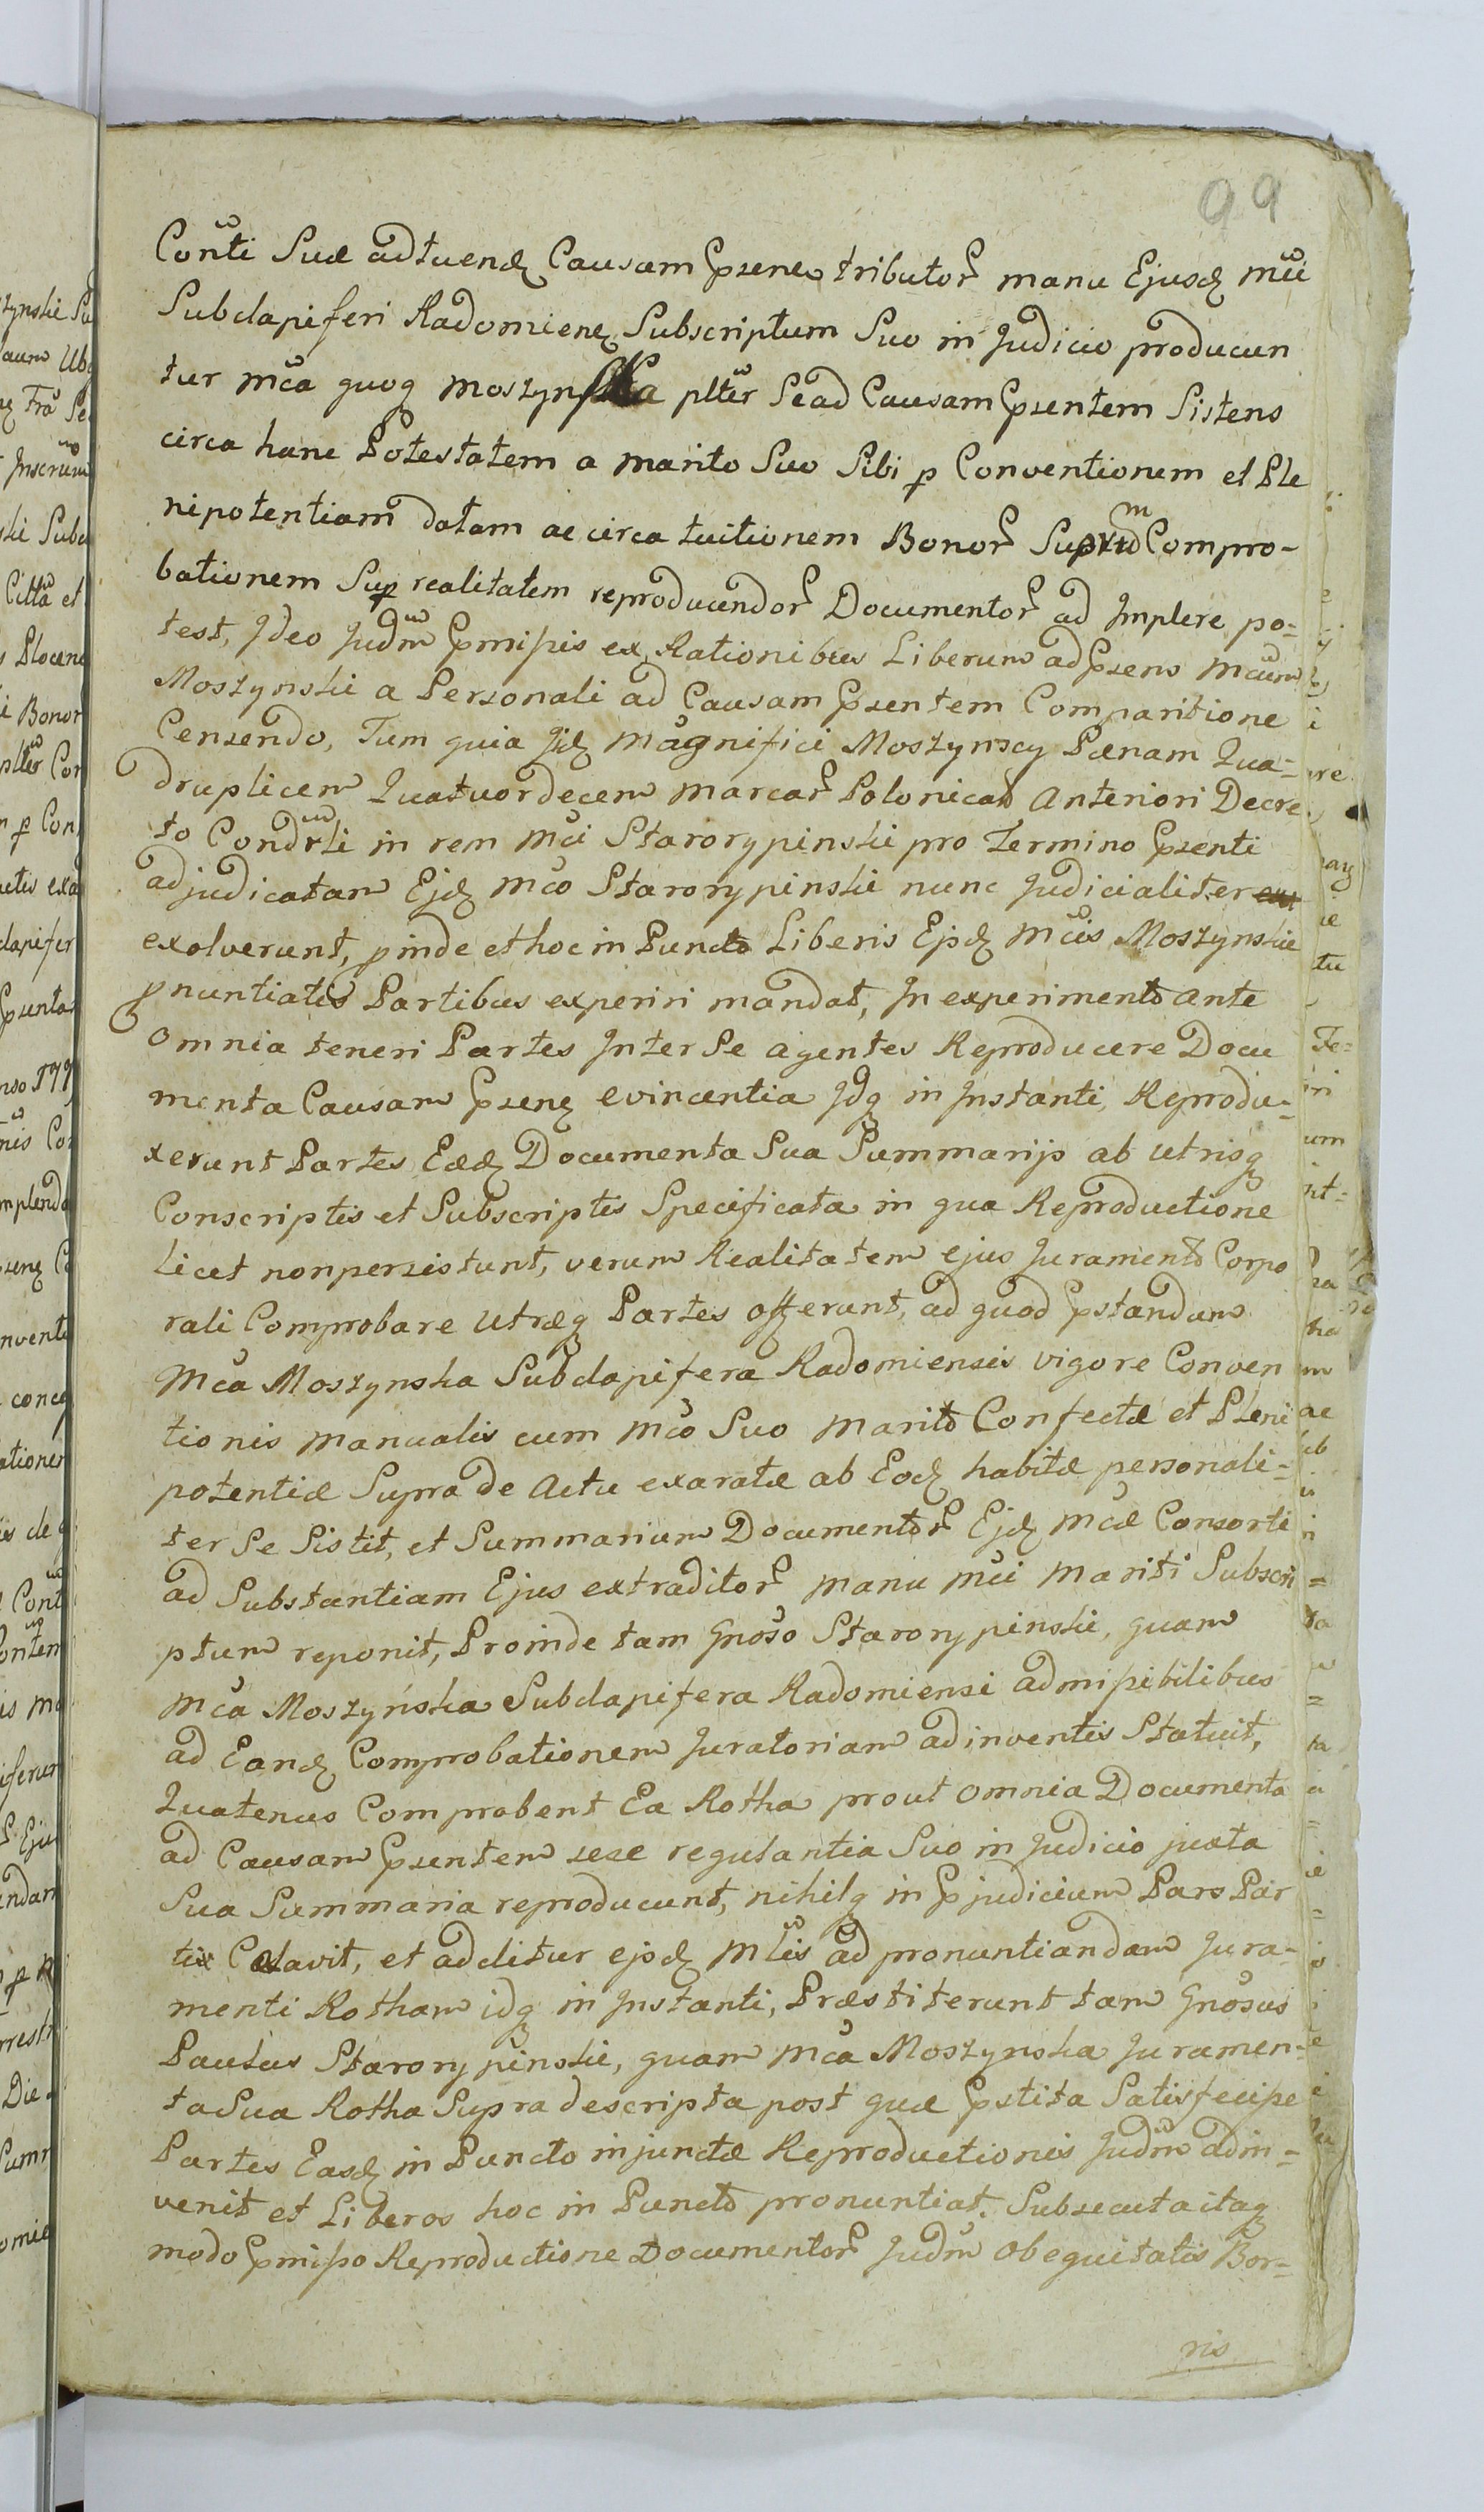 99
Conti Suæ adtuendę Causam Psene tributor manu Ejusdę mci
Subdapiferi Radomienę Subscriptum Suo in Judicio producun
tur mca quoq Moszynska plter Se ad Causam Psentem Sistens
circa hanc Potestatem a marito Suo Sibi p Conventionem et Ple
nipotentiam datam ac circa tuitionem Bonor Compro-
bationem Sup realitatem reproducendor Documentor ad Implere po=
test, Ideo Judm Pmissis ex Rationibus Liberum ad Psens mcum
Moszynski a Personali ad Causam Psentem Comparitione
Censendo, Tum quia Jidę magnifici Moszynscy Pænam Qua=
druplicem Quatuordecem marcar Polonical Anteriori Decre
to Condrti in rem mci Starorypinski pro Termino Psenti
adjudicatam Ejdę mco Starorypinski nunc Judicialiter
exolverunt, pinde et hoc in Puncto Liberis Ejsdę mcis Moszynskie
pnuntiatis Partibus experiri mandat, In experimento ante
omnia teneri Partes Inter Se agentes Reproducere Docu
menta Causam Psenę evincentia Idq in Instanti, Reprodu=
xerunt Partes Eædę Documenta Sua Summarijs ab utrisq
Conscriptis et Subscriptis Specificata in qua Reproductione
licet non persistunt, verum Realitatem ejus Juramento Corpo
rali Comprobare utræq Partes offerunt, ad quod Pstandum
Mca Moszynska Subdapifera Radomiensis vigore Conven
tionis manualis cum mco Suo marito Confectæ et Pleni
potentiæ Supra de Actu exaratæ ab Eodę habitæ personali=
ter Se Sistit, et Summarium Documentor Ejdę mcæ Consorti
ad Substantiam Ejus extraditor manu mci mariti Subscri
ptum reponit, Proinde tam Gnoso Starorypinski, quam
Mca Moszyńska Subdapifera Radomiensi admissibilibus
ad Eandę Comprobationem Juratoriam adinventis Statuit,
Quatenus Comprobent Ea Rotha prout omnia Documenta
ad Causam Psentem sese regulantia Suo in Judicio juxta
Sua Summaria reproducunt, nihilq in Pjudicium Pars Par
tis Celavit, et additur ejsdę Mlis ad pronuntiandam Jura-
menti Rotham idq in Instanti, Præstiterunt tam Gnosus
Paulus Starorypinski, quam Mca Moszynska Juramen=
ta Sua Rotha Supra descripta post quæ Pstita Satisfecisse
Partes Easdę in Puncto injunctæ Reproductionis Judm adin=
venit et Liberos hoc in Puncto pronuntiat. Subsecuta itaq
modo Pmisso Reproductione Documentor Judm Obequitatis Bor=
ris